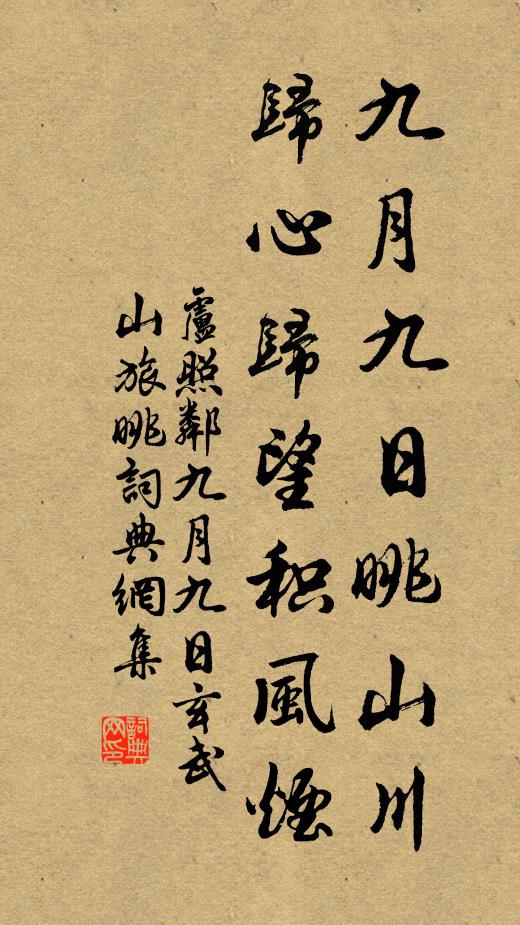 九月九日眺山川
歸心歸望积風煙
盧照鄰九月九日玄武
山旅眺詞典網集
詞典网印